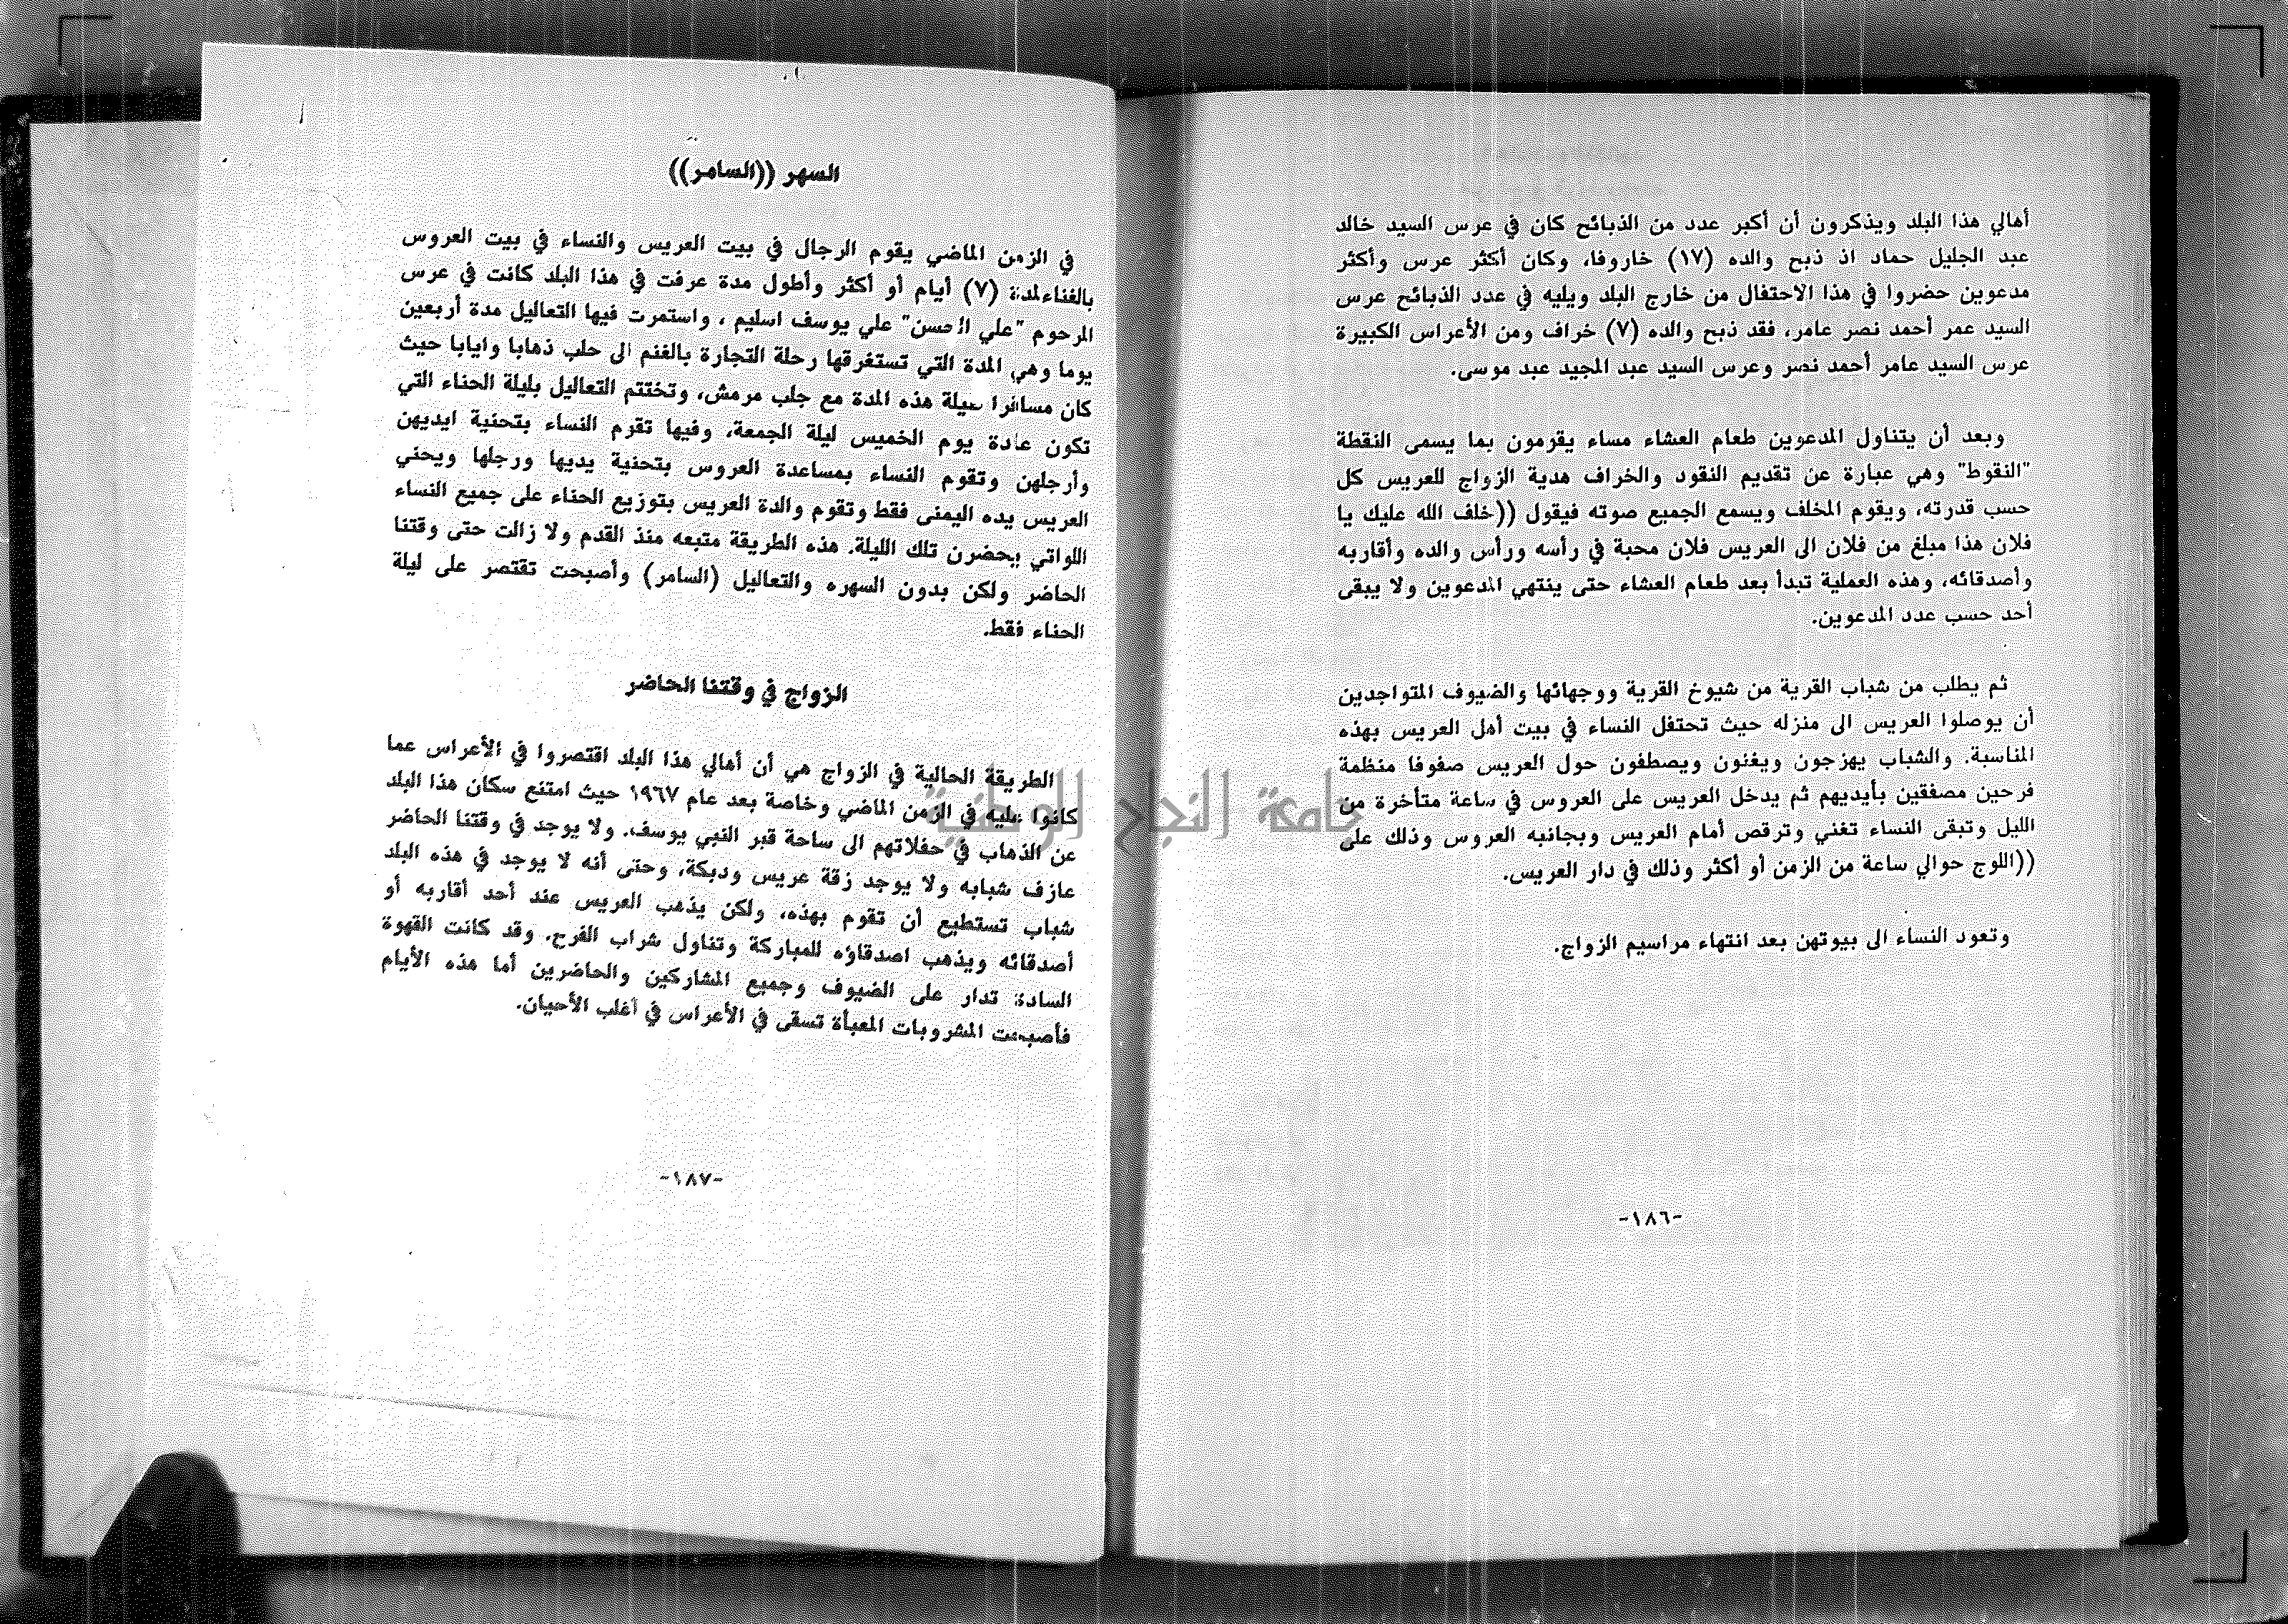 أهالي هذا البلد ويذكرون أن أكبر عدد من الذبائح كان في عرس السيد خالد
عبد الجليل حماد اذ ذبح والده (١٧) خاروفا، وكان أكثر عرس وأكثر
مدعوين حضروا في هذا الاحتفال من خارج البلد ويليه في عدد الذبائح عرس
السيد عمر أحمد نصر عامر، فقد ذبح والده (٧) خراف ومن الأعراس الكبيرة
عرس السيد عامر أحمد نصر وعرس السيد عبد المجيد عبد موسى.
وبعد أن يتناول المدعوين طعام العشاء مساء يقومون بما يسمى النقطة
"النقوط" وهي عبارة عن تقديم النقود والخراف هدية الزواج للعريس كل
حسب قدرته، ويقوم المخلف ويسمع الجميع صوته فيقول ((خلف الله عليك يا
فلان هذا مبلغ من فلان الى العريس فلان محبة في رأسه ورأس والده وأقاربه
وأصدقائه، وهذه العملية تبدأ بعد طعام العشاء حتى ينتهي المدعوين ولا يبقى
أحد حسب عدد المدعوين.
ثم يطلب من شباب القرية من شيوخ القرية ووجهائها والضيوف المتواجدين
أن يوصلوا العريس الى منزله حيث تحتفل النساء في بيت أهل العريس بهذه
المناسبة. والشباب يهزجون ويغنون ويصطفون حول العريس صفوفا منظمة
فرحين مصفقين بأيديهم ثم يدخل العريس على العروس في ساعة متأخرة من
الليل وتبقى النساء تغني وترقص أمام العريس وبجانبه العروس وذلك على
((اللوج حوالي ساعة من الزمن أو أكثر وذلك في دار العريس.
وتعود النساء الى بيوتهن بعد انتهاء مراسيم الزواج.
-١٨٦-
السهر ((السامر))
في الزمن الماضي يقوم الرجال في بيت العريس والنساء في بيت العروس
بالغناء لمدة (٧) أيام أو أكثر وأطول مدة عرفت في هذا البلد كانت في عرس
المرحوم "علي الحسن" علي يوسف اسليم ، واستمرت فيها التعاليل مدة أربعين
يوما وهي المدة التي تستغرقها رحلة التجارة بالغنم الى حلب ذهابا وايابا حيث
كان مسافرا طيلة هذه المدة مع جلب مرمش، وتختتم التعاليل بليلة الحناء التي
تكون عادة يوم الخميس ليلة الجمعة، وفيها تقوم النساء بتحنية ايديهن
وأرجلهن وتقوم النساء بمساعدة العروس بتحنية يديها ورجلها ويحني
العريس يده اليمنى فقط وتقوم والدة العريس بتوزيع الحناء على جميع النساء
اللواتي يحضرن تلك الليلة. هذه الطريقة متبعه منذ القدم ولا زالت حتى وقتنا
الحاضر ولكن بدون السهره والتعاليل (السامر) وأصبحت تقتصر على ليلة
الحناء فقط.
الزواج في وقتنا الحاضر
الطريقة الحالية في الزواج هي أن أهالي هذا البلد اقتصروا في الأعراس عما
كانوا عليه في الزمن الماضي وخاصة بعد عام ١٩٦٧ حيث امتنع سكان هذا البلد
عن الذهاب في حفلاتهم الى ساحة قبر النبي يوسف. ولا يوجد في وقتنا الحاضر
عازف شبابه ولا يوجد زقة عريس ودبكة، وحتى أنه لا يوجد في هذه البلد
شباب تستطيع أن تقوم بهذه، ولكن يذهب العريس عند أحد أقاربه أو
أصدقائه ويذهب اصدقاؤه للمباركة وتناول شراب الفرح. وقد كانت القهوة
السادة تدار على الضيوف وجميع المشاركين والحاضرين أما هذه الأيام
فأصبحت المشروبات المعبأة تسقى في الأعراس في أغلب الأحيان.
-١٨٧-
جامعة النجاح الوطنية